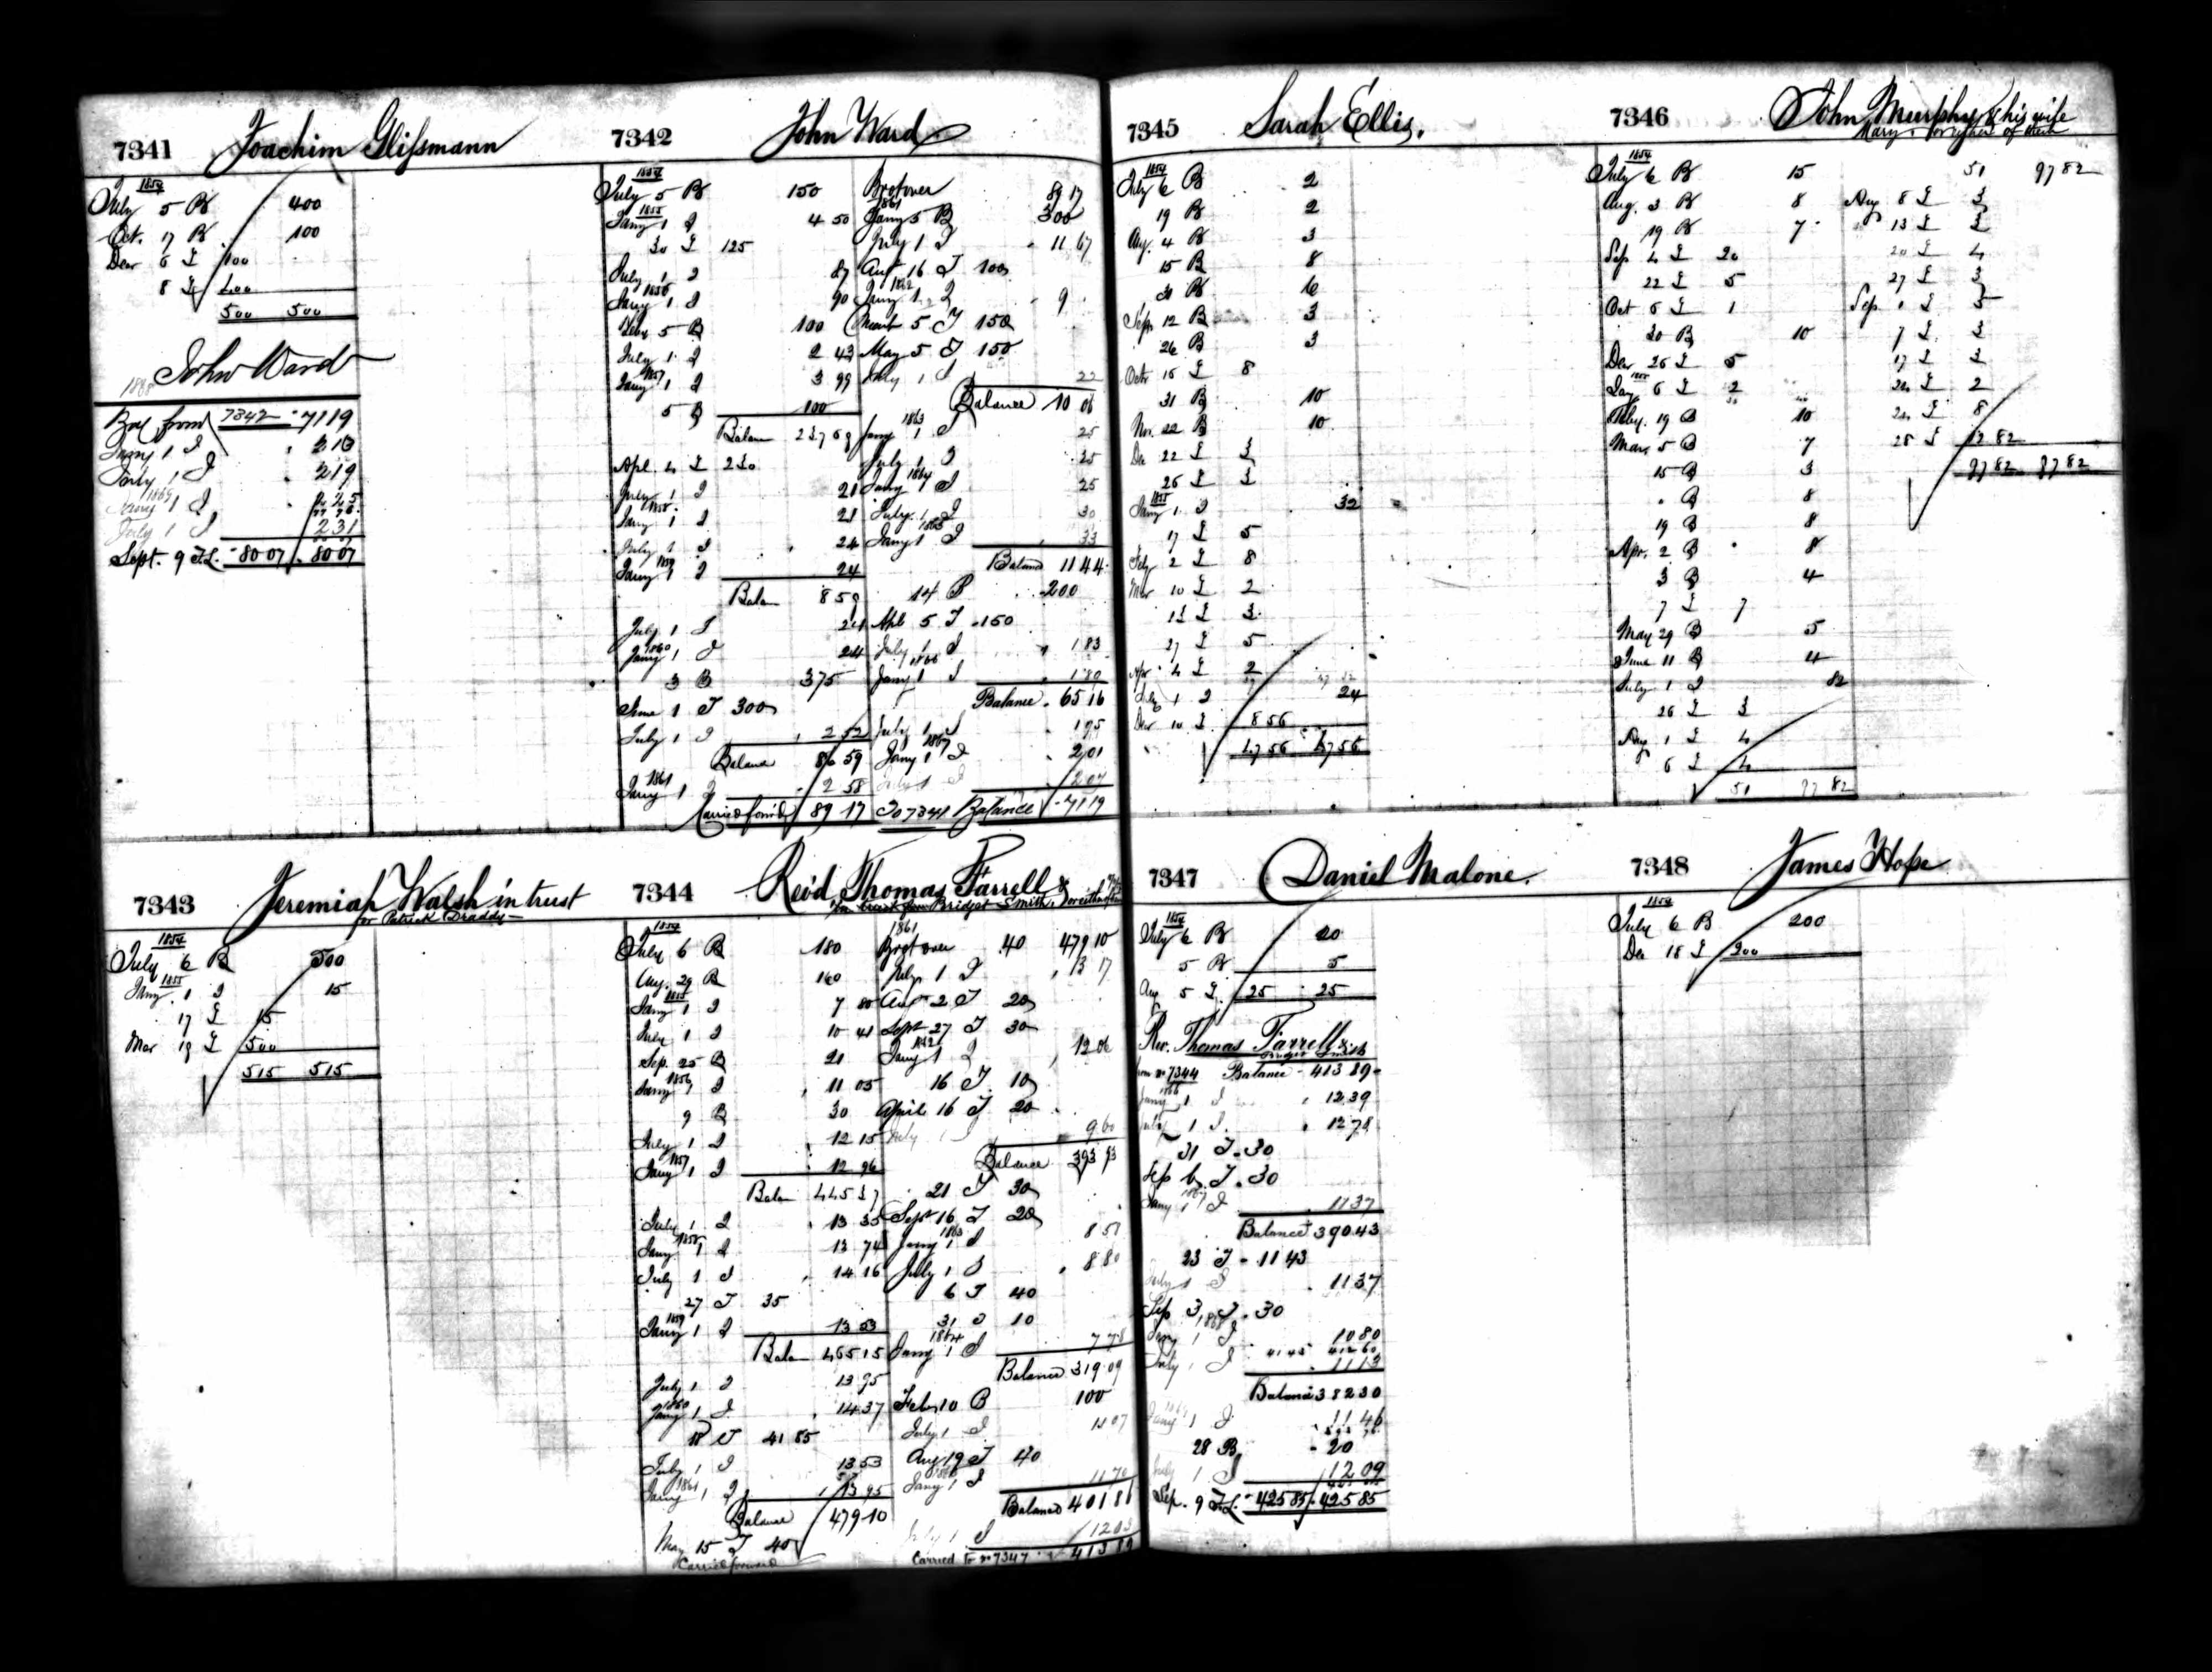 7341 Joachim Glissmann
1854
July 5 B 400
Oct. 17 B 100
Decr 6 I 100
8 I 400
500 500
John Ward
1868
Bal from 7342 71 19
Jany 1 I 2 13
July 1 I 2 19
1869
Jany 1 I 2 25
July 1 I 2 31
Sept. 9 T.L. 80 07 80 07
7342 John Ward
1854
July 5 B 150
1855
Jany 1 I 4 50
30 I 125
July 1 I 87
1856
Jany 1 I 90
5 B 100
July 1 I 2 43
1857
Jany 1 I 3 99
5 B 100
Balan 237 69
Apl. 4 I 230
July 1 I 21
1858
Jany 1 I 21
July 1 I 24
1859
Jany 1 I 24
Balan 8 59
July 1 I 24
1860
Jany 1 I 24
3 B 375
June 1 T 300
July 1 I 2 52
Balance 86 59
1861
Jany 1 I 2 58
Carried forwd 89 17
Brot over 89 17
1861
Jany 5 B 300
July 1 I 11 67
Augt 16 T 100
1862
Jany 1 I 9
March 5 T 150
May 5 T 150
July 1 I 22
Balance 10 06
1863
Jany 1 I 25
July 1 I 25
1864
Jany 1 I 25
July 1 I 30
1865
Jany 1 I 33
Balance 11 44
14 B 200
Apl 5 T 150
July 1 I 1 83
1866
Jany 1 I 1 80
Balance 65 16
July 1 I 1 95
1867
Jany 1 I 2 01
July 1 I 2 07
To 7341 Balance 71 19
7343 Jeremiah Walsh in trust
for Patrick Draddy
1854
July 6 B 500
1855
Jany 1 I 15
17 I 15
Mar 19 I 500
515 515
7344 Revd Thomas Farrell &
Bridget Smith
1854
July 6 B 180
Aug. 29 B 160
1855
Jany 1 I 7 80
July 1 I 10 41
Sep. 25 B 21
1856
Jany 1 I 11 05
9 B 30
July 1 I 12 15
1857
Jany 1 I 12 96
Balan 445 37
July 1 I 13 35
1858
Jany 1 I 13 74
July 1 I 14 16
27 T 35
1859
Jany 1 I 13 53
Balan 465 15
July 1 I 13 95
1860
Jany 1 I 14 37
18 T 41 85
July 1 I 13 53
1861
Jany 1 I 13 95
Balance 479 10
May 15 T 40
Carried forward
1861
Brot over 40 479 10
July 1 I 13 17
Aug 2 T 20
Sept 27 T 30
1862
Jany 1 I 12 06
16 T 10
April 16 T 20
July 1 I 9 60
Balance 393 93
21 T 30
Sept 16 T 20
1863
Jany 1 I 8 51
July 1 I 8 80
6 T 40
31 T 10
1864
Jany 1 I 7 78
Balance 319 09
Feby 10 B 100
July 1 I 11 07
Aug 19 T 40
1865
Jany 1 I 11 70
Balance 401 86
July 1 I 12 03
Carried to no 7347 413 89
7345 Sarah Ellis.
1854
July 6 B 2
19 B 2
Aug. 4 B 3
15 B 8
31 B 6
Sepr 12 B 3
26 B 3
Octr 16 I 8
31 B 10
Nov. 22 B 10
De 22 I 3
26 I 3
1855
Jany 1 I 32
17 I 5
Feby 2 I 8
Mar 10 I 2
13 I 3
27 I 5
Apr 4 I 2
July 1 I 24
Dec 10 I 8 56
47 56 47 56
7346 John Murphy & his wife
Mary or either of them
1854
July 6 B 15
Aug. 3 B 8
19 B 7
Sep 4 I 20
22 I 5
Oct 6 I 1
30 B 10
Dec 26 I 5
1855
Jany 6 I 2
Feby. 19 B 10
Mar 5 B 7
15 B 3
" B 8
19 B 8
Apr. 2 B 8
3 B 4
7 I 7
May 29 B 5
June 11 B 4
July 1 I 82
26 I 3
Aug 1 I 4
6 I 4
51 97 82
51 97 82
Aug 8 I 3
13 I 3
20 I 4
27 I 3
Sep. 1 I 5
7 I 3
17 I 3
24 I 2
24 I 8
28 I 12 82
97 82 97 82
7347 Daniel Malone.
1854
July 6 B 20
5 B 5
Aug 5 I 25 25
Rev. Thomas Farrell &
Bridget Smith
from no 7344 Balance 413 89
1866
Jany 1 I 12 39
July 1 I 12 78
31 T 30
Sep 6 T 30
1867
Jany 1 I 11 37
Balance 390 43
23 T 11 43
July 1 I 11 37
Sep 3 T 30
1868
Jany 1 I 10 80
July 1 I 11 13
Balance 382 30
Jany 1 I 11 46
28 B 20
July 1 I 12 09
Sep. 9 T.L. 425 85 425 85
7348 James Hope
1854
July 6 B 200
De 18 I 200